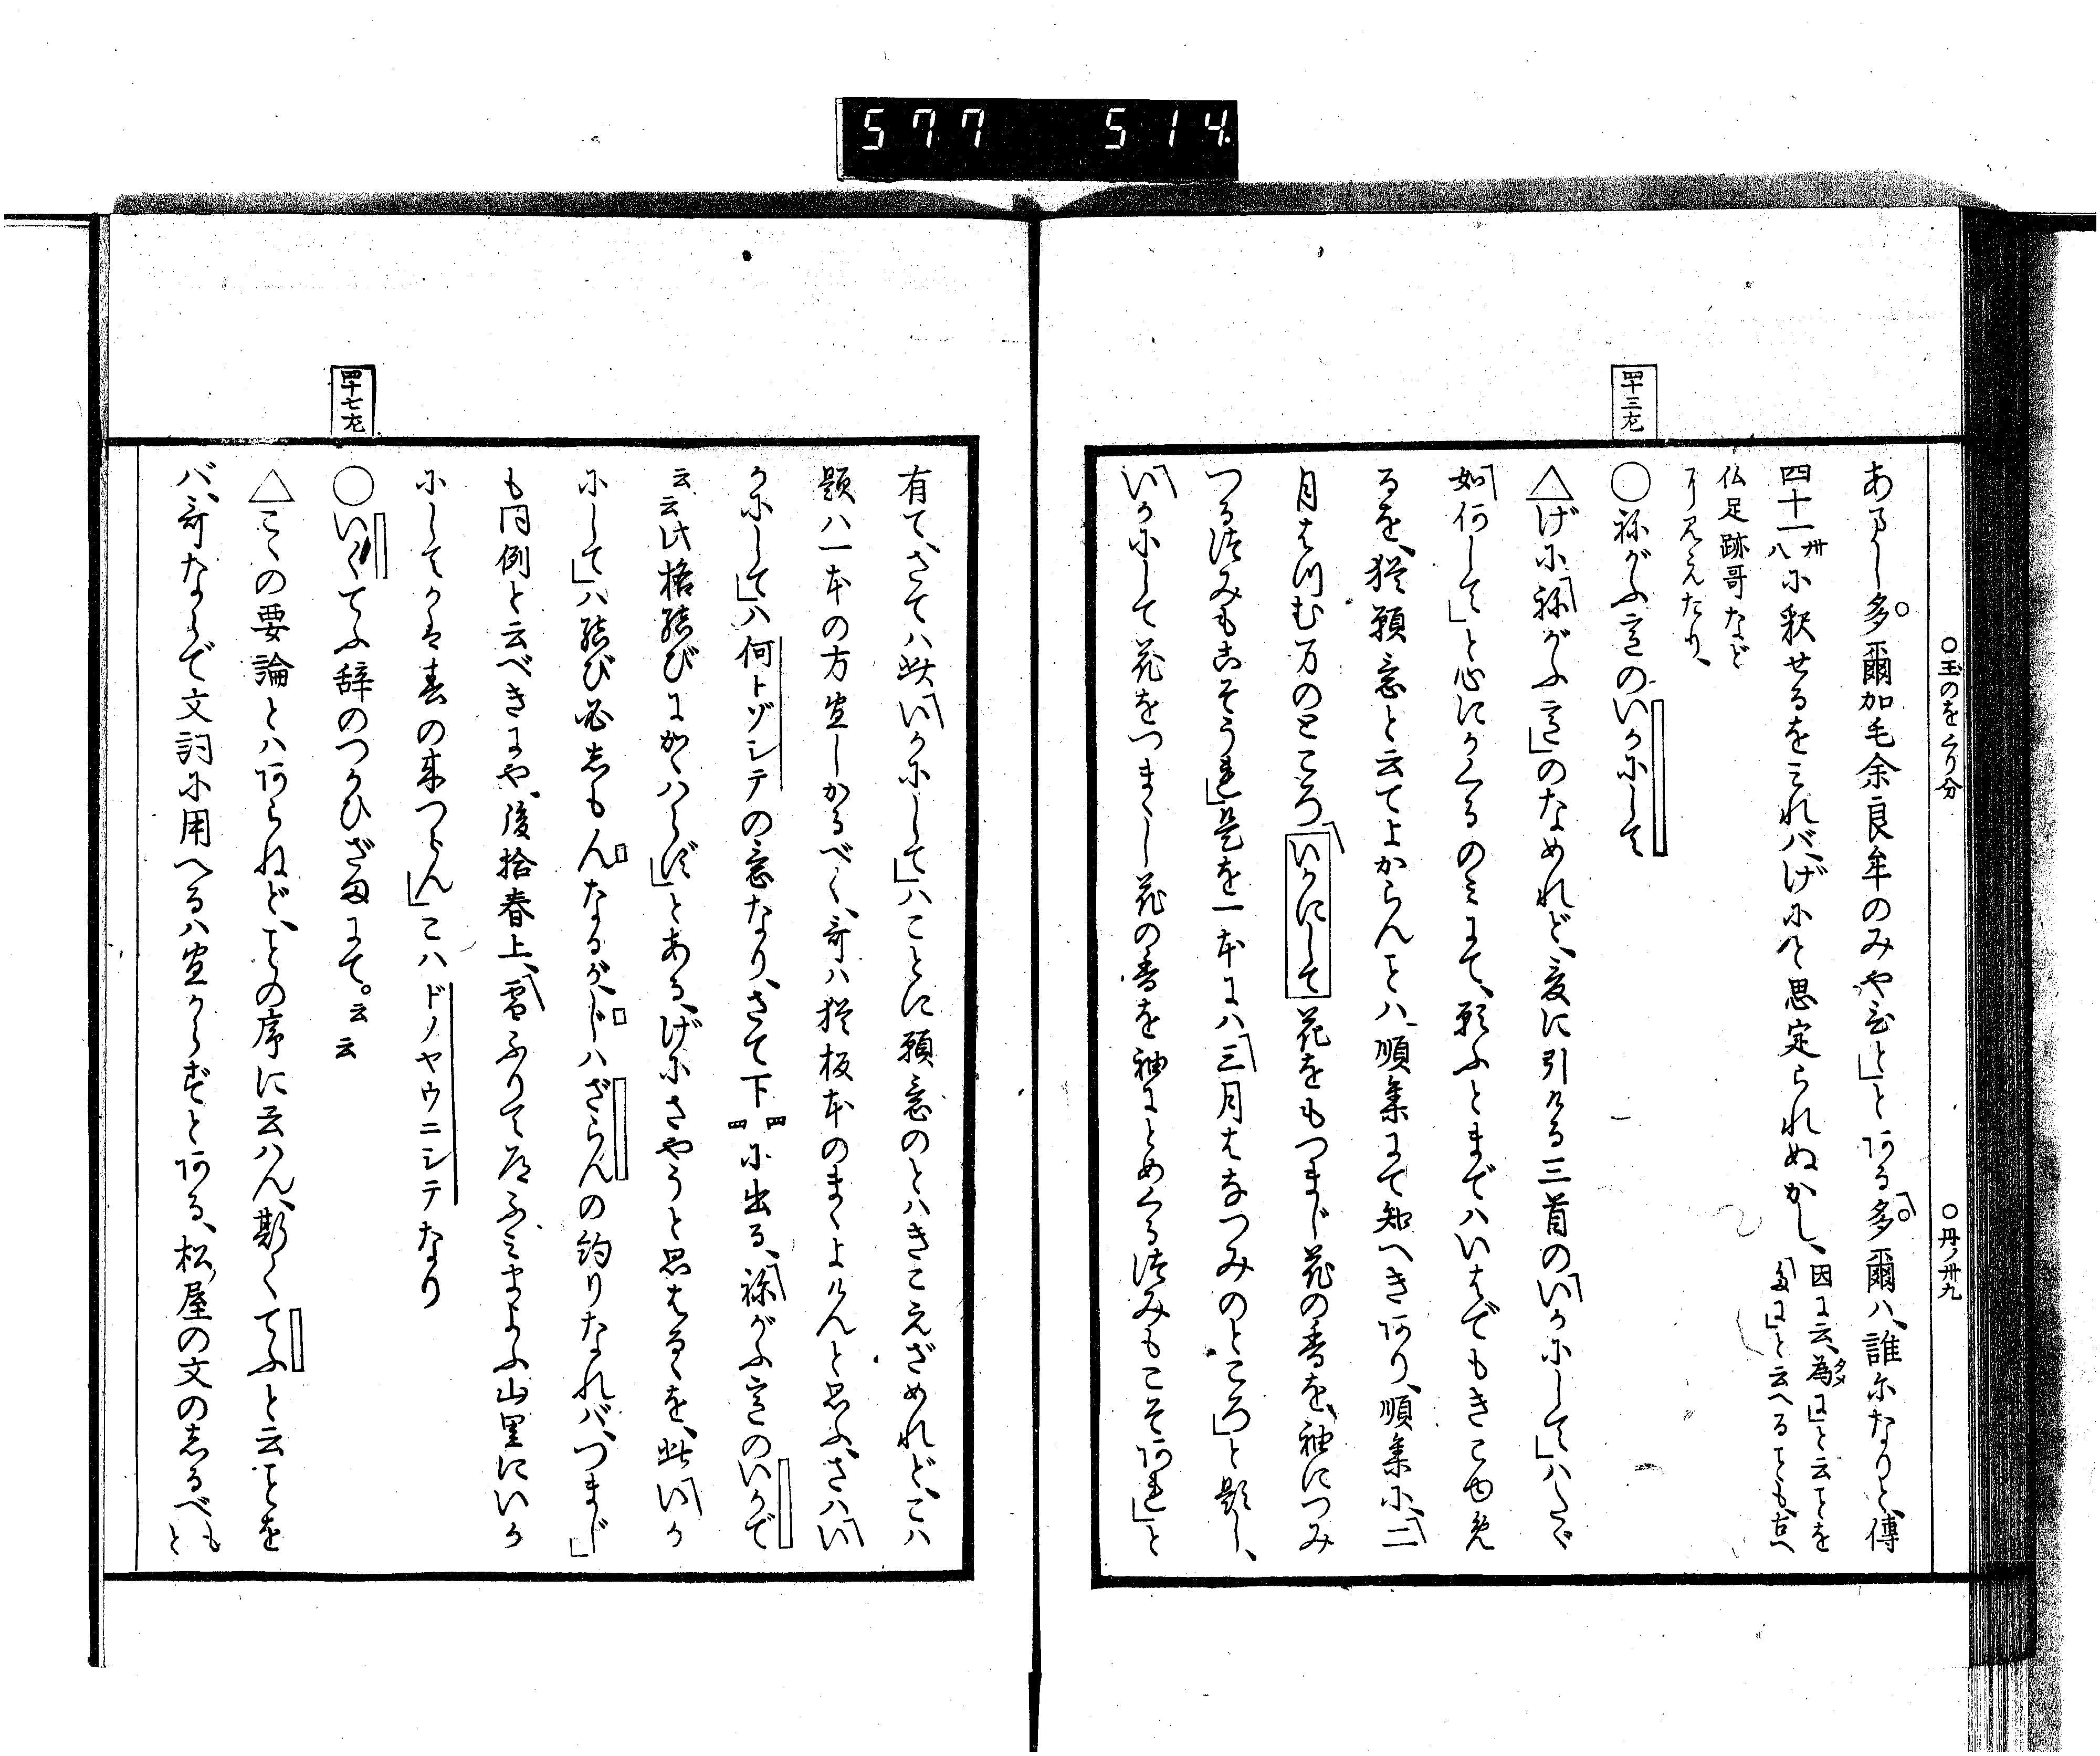 577 514
○玉のをくり分 ○丹ノ卅九
あまし多爾加毛余良牟のみや〳〵と」とある「多爾ハ、誰尓なりと、傳
四十一卅八に釈せるをみれバ、げにも思定られぬかし、因に云、為にと云ことを
「多に」と云へることも、古ヘ
仏足跡哥など
に見えたり、
四十三左
○祢がふ意のいかにして
△げに「祢がふ意」のなめれど、爰に引ける三首の「いかにして」ハたゞ
「如何して」と心にかくるのみにて、願ふとまでハいはでもきこゆめ
るを、猶願意と云てよからんことハ、順集にて知へきあり、順集に、「二
月はつむ万のところ「いかにして花をもつまじ花の香を、袖につみ
つる徒みもこそうれ」是を一本にハ「三月はなつみのところ」と題し、
「いかにして花をつまゝし花の香を袖にとめくる徒みもこそあれ」と
有て、さてハ此「いかにして」ハことに願意のとハきこえざめれど、こハ
題ハ一本の方宜しかるべく、哥ハ猶板本のまゝよけんと思ふ、さハ「い
かにして」ハ何トゾシテの意なり、さて下四四に出る、「祢がふ意のいかで
云云此格結びにかゝハらず」とある、げにさやうと思はるゝを、此「いか
にして」ハ結び必しもんなるが、じハざらんの約りなれバ、つまじ」
も同例と云べきにや、後拾春上、「雪ふりて道ふみまよふ山里にいか
にしてかは春の来つらん」こハドノヤウニシテなり
四十七左
○いくてふ辞のつかひざまにて。云云
△こゝの要論とハあらねど、ことの序に云ハん、斯くてふと云ことを
バ、哥ならで文詞に用へるハ宜からずとある、松ノ屋の文のしるべもと